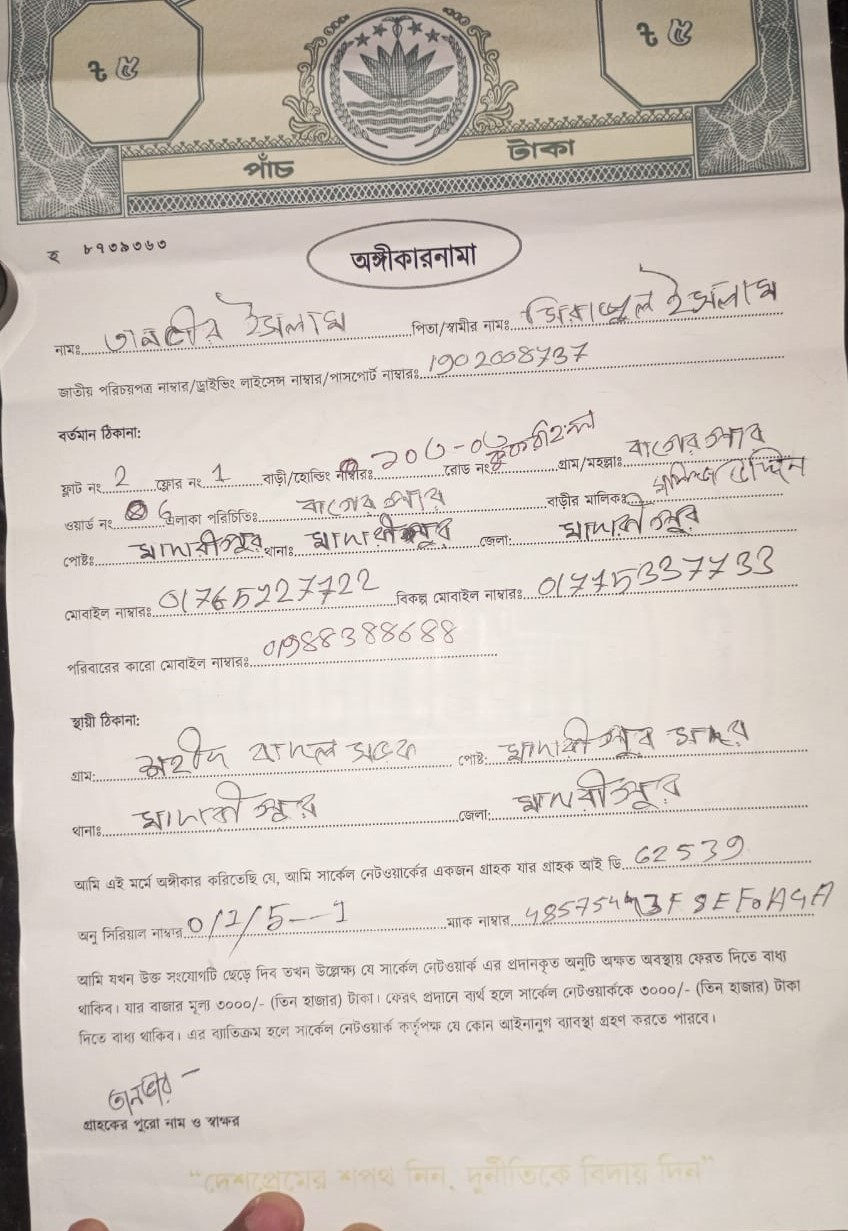 ৳ ৫ ৳ ৫
পাঁচ টাকা
ছ ৮৭৩৯৩৬৩
অঙ্গীকারনামা
নামঃ তানভীর ইসলাম পিতা/স্বামীর নামঃ সিরাজুল ইসলাম
জাতীয় পরিচয়পত্র নাম্বার/ড্রাইভিং লাইসেন্স নাম্বার/পাসপোর্ট নাম্বারঃ 1902008737
বর্তমান ঠিকানা:
ফ্লাট নং 2 ফ্লোর নং 1 বাড়ী/হোল্ডিং নাম্বারঃ রোড নং গ্রাম/মহল্লাঃ
ওয়ার্ড নং 6 এলাকা পরিচিতিঃ বাড়ীর মালিকঃ
পোষ্টঃ মাদারীপুর থানাঃ মাদারীপুর জেলা: মাদারীপুর
মোবাইল নাম্বারঃ 01765227722 বিকল্প মোবাইল নাম্বারঃ 01775337733
পরিবারের কারো মোবাইল নাম্বারঃ 01988388688
স্থায়ী ঠিকানা:
গ্রাম: শহীদ বাদল সড়ক পোষ্ট: মাদারীপুর সদর
থানাঃ মাদারীপুর জেলা: মাদারীপুর
আমি এই মর্মে অঙ্গীকার করিতেছি যে, আমি সার্কেল নেটওয়ার্কের একজন গ্রাহক যার গ্রাহক আই ডি 62539
অনু সিরিয়াল নাম্বার 0/1/5--1 ম্যাক নাম্বার
আমি যখন উক্ত সংযোগটি ছেড়ে দিব তখন উল্লেক্ষ্য যে সার্কেল নেটওয়ার্ক এর প্রদানকৃত অনুটি অক্ষত অবস্থায় ফেরত দিতে বাধ্য
থাকিব। যার বাজার মূল্য ৩০০০/- (তিন হাজার) টাকা। ফেরৎ প্রদানে ব্যর্থ হলে সার্কেল নেটওয়ার্ককে ৩০০০/- (তিন হাজার) টাকা
দিতে বাধ্য থাকিব। এর ব্যতিক্রম হলে সার্কেল নেটওয়ার্ক কর্তৃপক্ষ যে কোন আইনানুগ ব্যবস্থা গ্রহণ করতে পারবে।
তানভীর
গ্রাহকের পুরো নাম ও স্বাক্ষর
"দেশপ্রেমের শপথ নিন, দুর্নীতিকে বিদায় দিন"